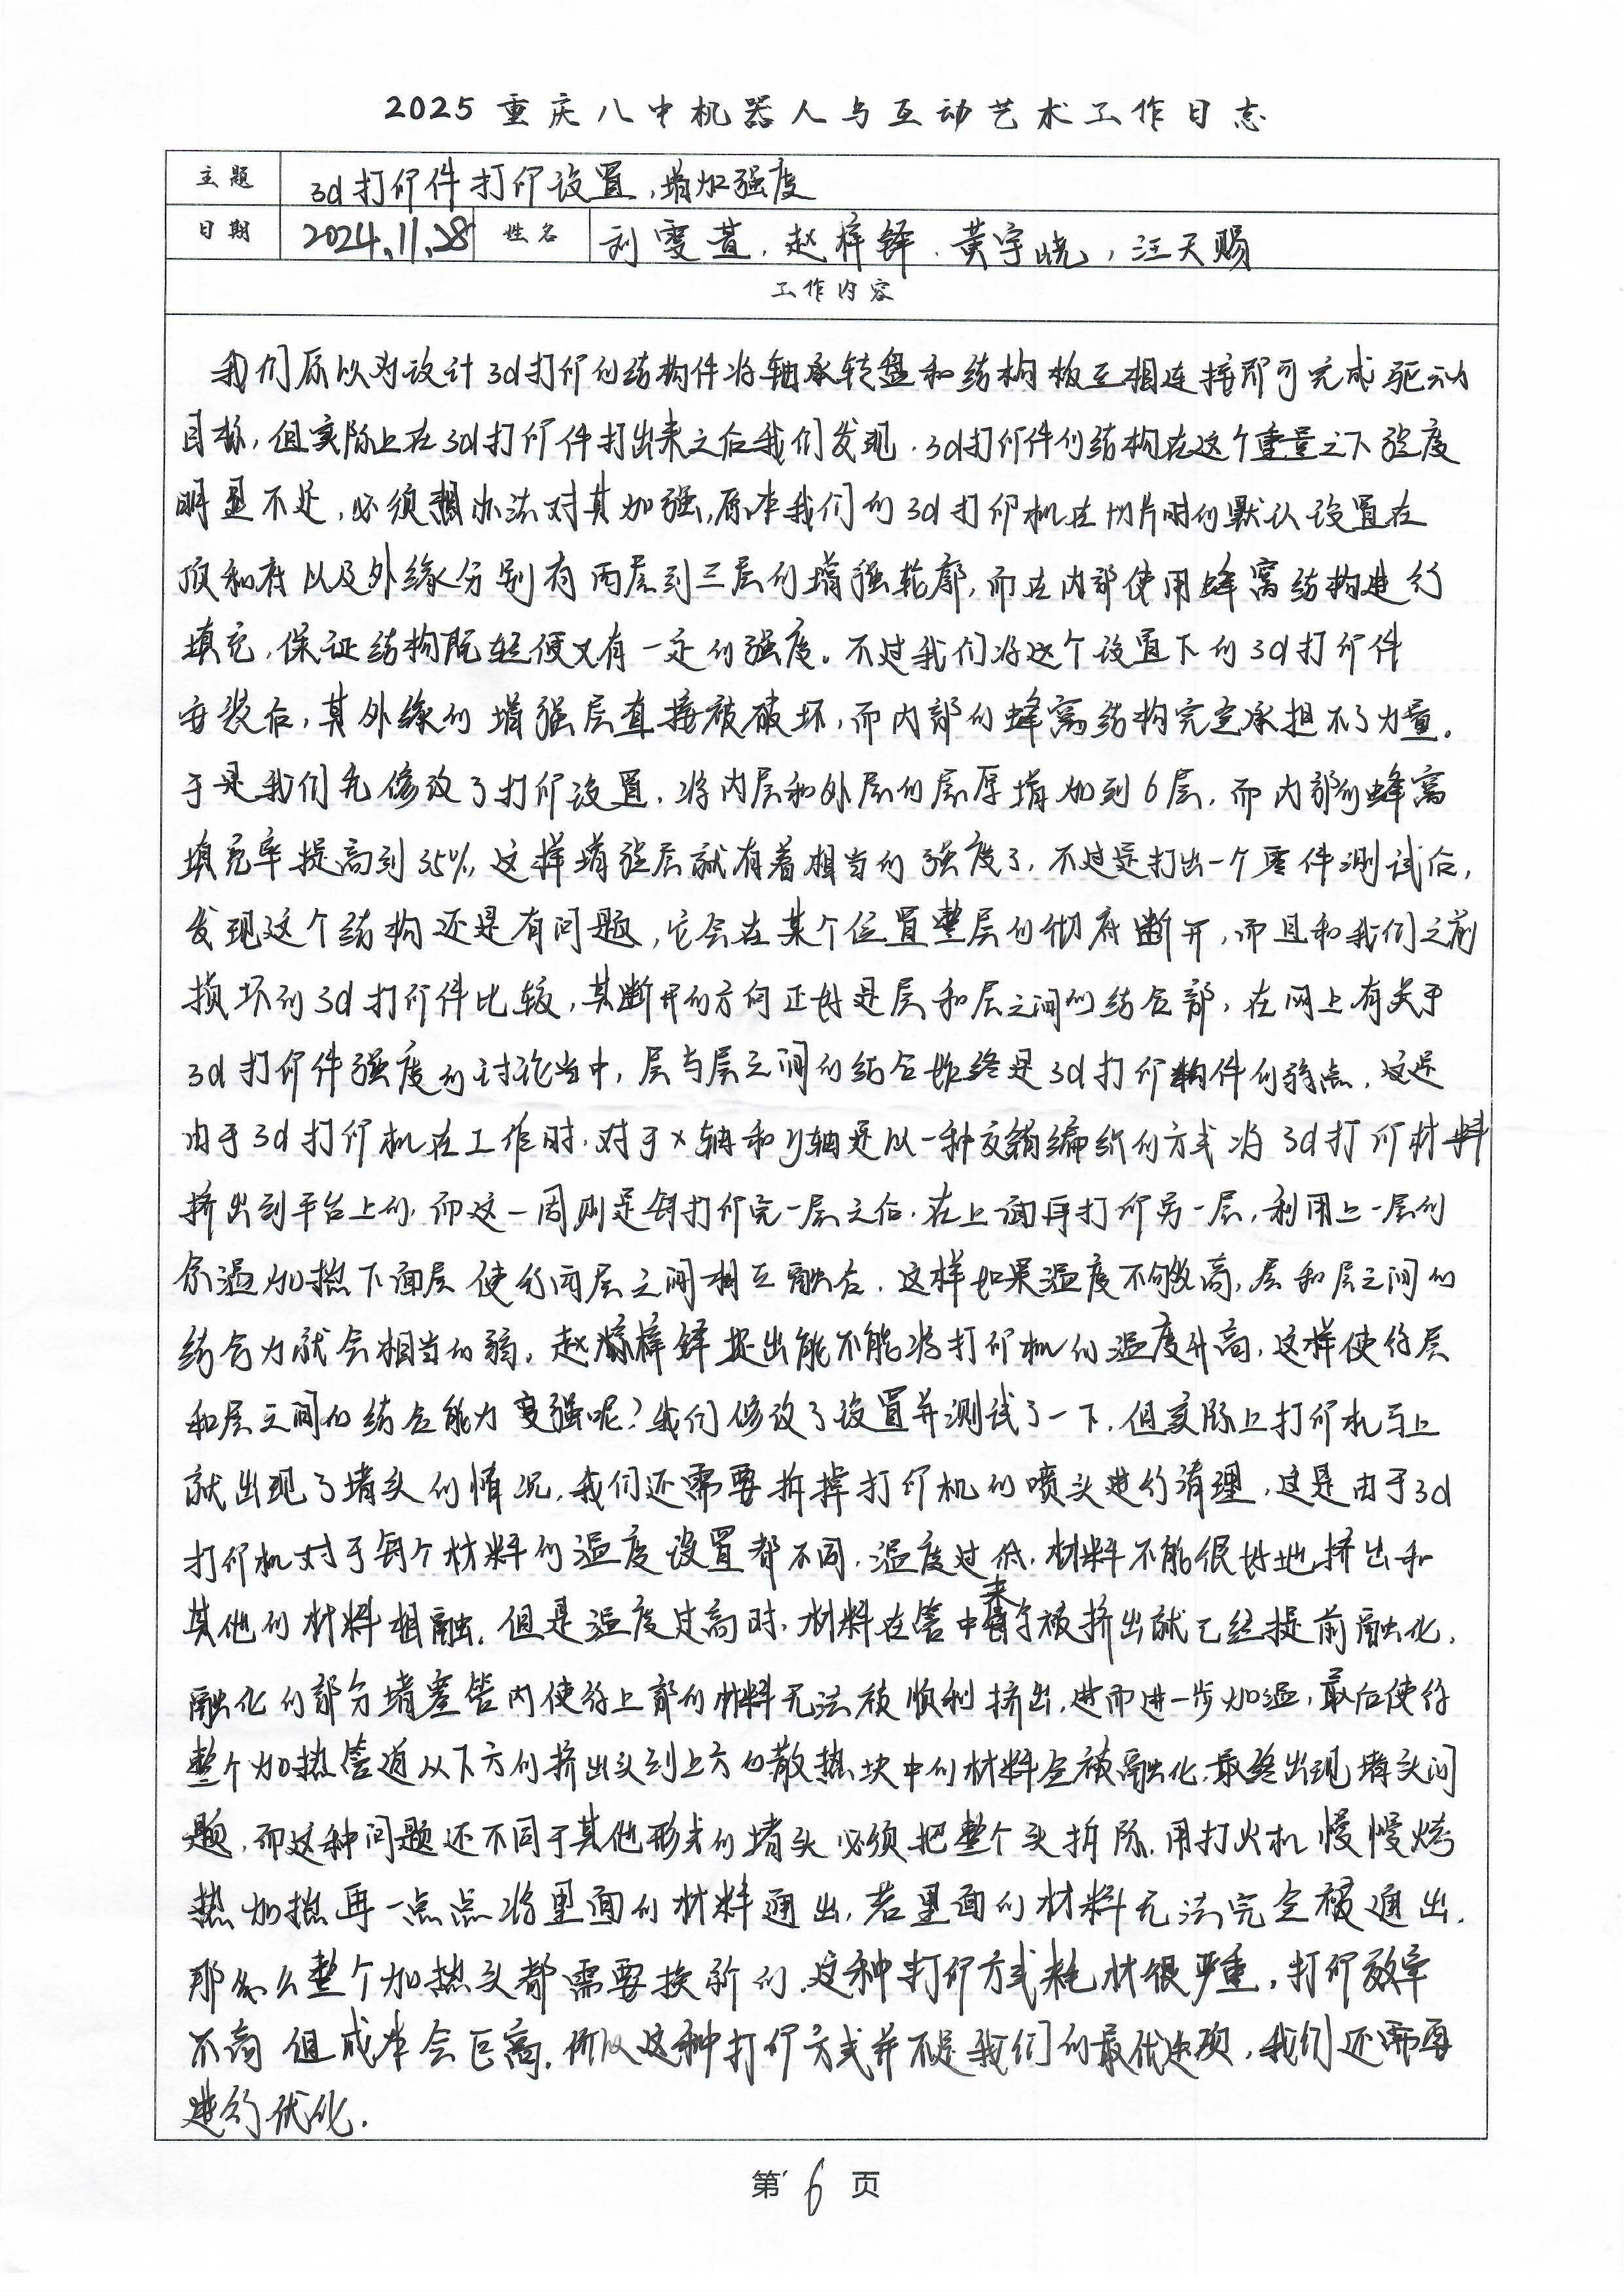 2025重庆八中机器人与互动艺术工作日志
主题 3d打印件打印设置,增加强度
日期 2024.11.28 姓名 刘雯萱.赵梓铎.黄宇晓,汪天赐
工作内容
我们原以为设计3d打印的结构件将轴承转盘和结构板互相连接即可完成驱动
目标,但实际上在3d打印件打出来之后我们发现.3d打印件的结构在这个重量之下强度
明显不足,必须想办法对其加强,原本我们的3d打印机在切片时的默认设置在
顶和底以及外缘分别有两层到三层的增强轮廓,而在内部使用蜂窝结构进行
填充,保证结构既轻便又有一定的强度。不过我们将这个设置下的3d打印件
安装后,其外缘的增强层直接被破坏,而内部的蜂窝结构完全承担不了力量。
于是我们先修改了打印设置,将内层和外层的层厚增加到6层,而内部的蜂窝
填充率提高到35%,这样增强层就有着相当的强度了,不过是打出一个零件测试后,
发现这个结构还是有问题,它会在某个位置整层的彻底断开,而且和我们之前
损坏的3d打印件比较,其断开的方向正好是层和层之间的结合部,在网上有关于
3d打印件强度的讨论当中,层与层之间的结合始终是3d打印构件的弱点,这是
由于3d打印机在工作时,对于x轴和y轴是以一种交错编织的方式将3d打印材料
挤出到平台上的,而这一周则是每打印完一层之后,在上面再打印另一层,利用上一层的
余温加热下面层使得两层之间相互融合,这样如果温度不够高,层和层之间的
结合力就会相当的弱。赵梓铎提出能不能将打印机的温度升高,这样使得层
和层之间的结合能力变强呢?我们修改了设置并测试了一下,但实际上打印机马上
就出现了堵头的情况,我们还需要拆掉打印机的喷头进行清理,这是由于3d
打印机对于每个材料的温度设置都不同,温度过低,材料不能很好地挤出和
其他的材料相融。但是温度过高时,材料在管中未被挤出就已经提前融化,
融化的部分堵塞管内使得上部的材料无法被顺利挤出,进而进一步加温,最后使得
整个加热管道从下方的挤出头到上方的散热块中的材料全被融化,最终出现堵头问
题,而这种问题还不同于其他形式的堵头必须把整个头拆除,用打火机慢慢烤
热加热再一点点将里面的材料通出,若里面的材料无法完全被通出,
那么整个加热头都需要换新的,这种打印方式耗材很严重,打印效率
不高但成本会巨高,所以这种打印方式并不是我们的最优选项,我们还需再
进行优化.
第6页